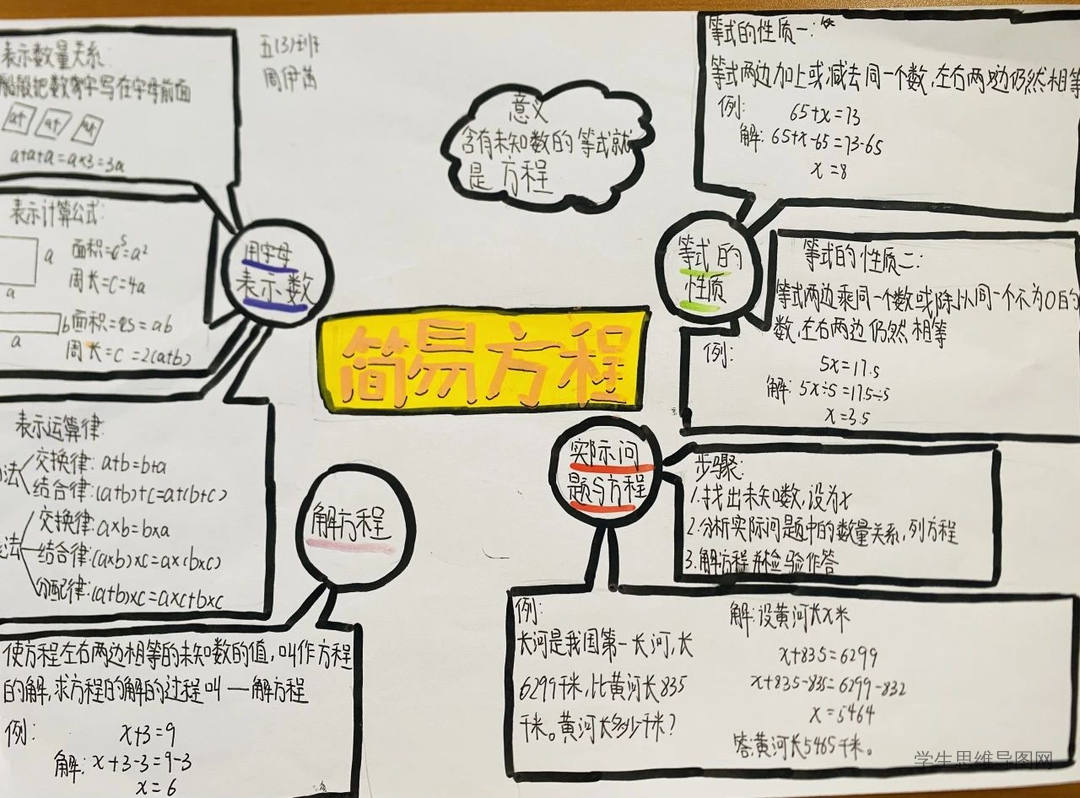 表示数量关系:
般把数字写在字母前面
a+a+a=a×3=3a
五(3)班
周伊茜
意义
含有未知数的等式就
是方程
等式的性质一:
等式两边加上或减去同一个数,左右两边仍然相等
例:
65+x=73
解:65+x-65=73-65
x=8
表示计算公式:
a
a
面积=S=a²
周长=C=4a
b
a
面积=S=ab
周长=C=2(a+b)
用字母
表示数
等式的
性质
等式的性质二:
等式两边乘同一个数或除以同一个不为0的
数,左右两边仍然相等
例:
5x=17.5
解:5x÷5=17.5÷5
x=3.5
简易方程
表示运算律:
法
交换律:a+b=b+a
结合律:(a+b)+c=a+(b+c)
法
交换律:a×b=b×a
结合律:(a×b)×c=a×(b×c)
分配律:(a+b)×c=a×c+b×c
解方程
实际问
题与方程
步骤:
1.找出未知数,设为x
2.分析实际问题中的数量关系,列方程
3.解方程并检验作答
使方程左右两边相等的未知数的值,叫作方程
的解,求方程的解的过程叫一解方程
例:
x+3=9
解:x+3-3=9-3
x=6
例:
长河是我国第一长河,长
6299千米,比黄河长835
千米。黄河长多少千米?
解:设黄河长x米
x+835=6299
x+835-835=6299-832
x=5464
答:黄河长5465千米。
学生思维导图网